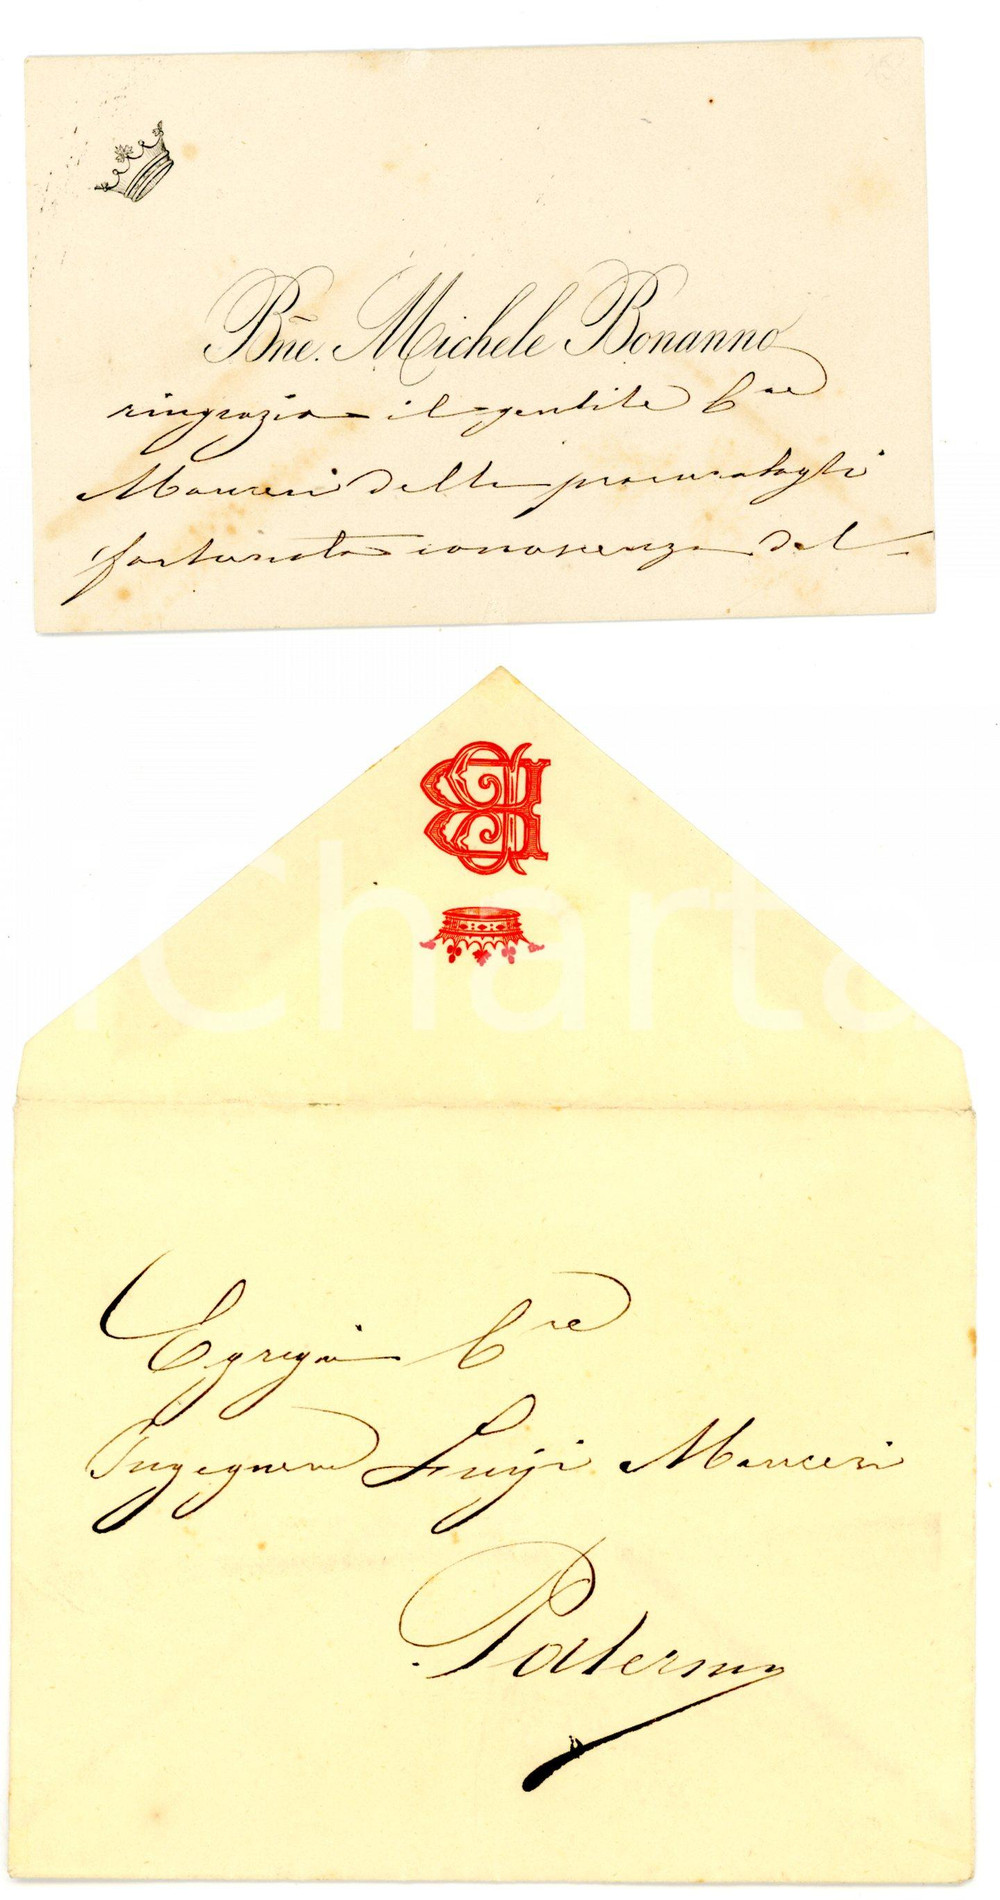 Bne. Michele Bonanno
ringrazia il gentile Cre
Mauceri della procuratagli
fortunata conoscenza del-
Egregio Cre
Ingegnere Luigi Mauceri
Palermo